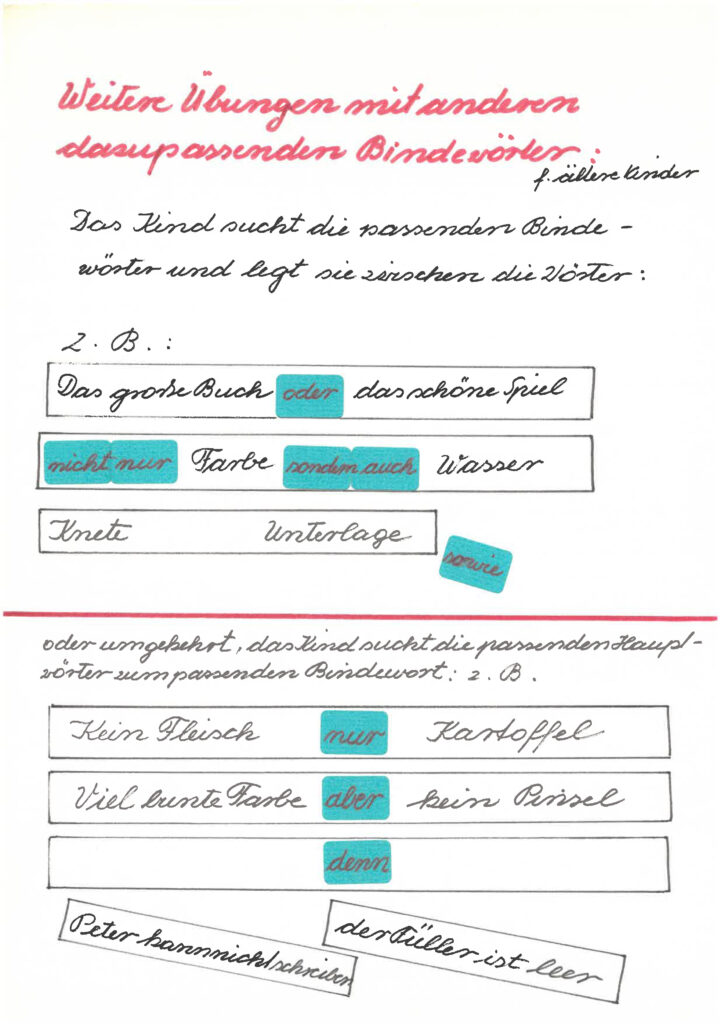 Weitere Übungen mit anderen
dazupassenden Bindewörter:
f. ältere Kinder
Das Kind sucht die passenden Binde-
wörter und legt sie zwischen die Wörter:
z. B.:
Das große Buch oder das schöne Spiel
nicht nur Farbe sondern auch Wasser
Knete Unterlage
sowie
oder umgekehrt, das Kind sucht die passenden Haupt-
wörter zum passenden Bindewort: z. B.
Kein Fleisch nur Kartoffel
Viel bunte Farbe aber kein Pinsel
denn
Peter kann nicht schreiben
der Füller ist leer